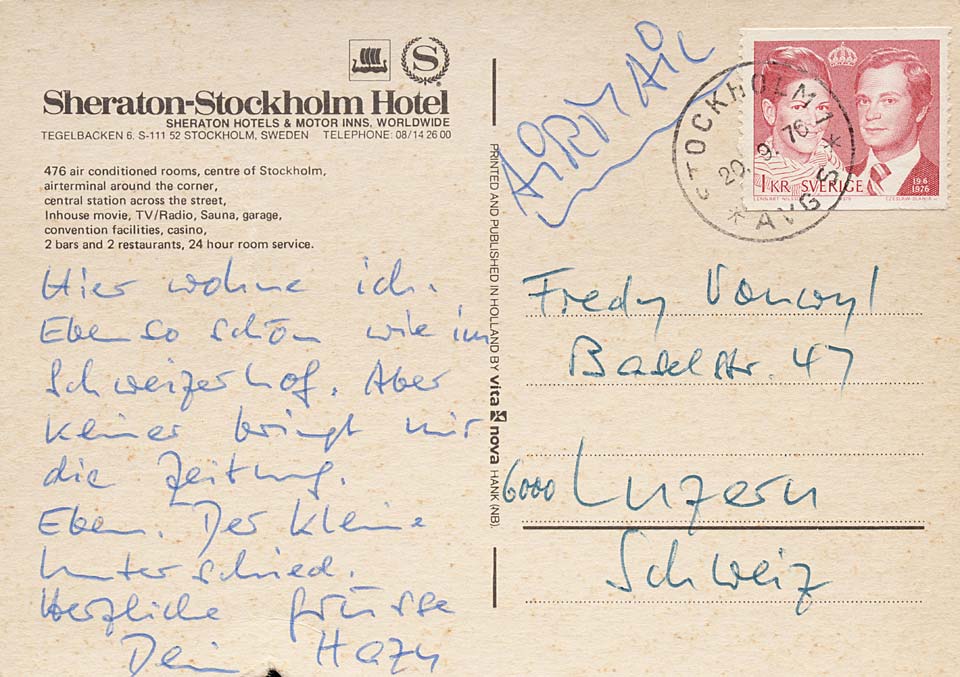 S
Sheraton-Stockholm Hotel
SHERATON HOTELS & MOTOR INNS, WORLDWIDE
TEGELBACKEN 6. S-111 52 STOCKHOLM, SWEDEN TELEPHONE: 08/14 26 00
476 air conditioned rooms, centre of Stockholm,
airterminal around the corner,
central station across the street,
Inhouse movie, TV/Radio, Sauna, garage,
convention facilities, casino,
2 bars and 2 restaurants, 24 hour room service.
Hier wohne ich.
Ebenso schön wie im
Schweizerhof. Aber
keiner bringt mir
die Zeitung.
Eben. Der kleine
Unterschied.
Herzliche Grüsse
Dein Hazy
PRINTED AND PUBLISHED IN HOLLAND BY vita nova HANK (NB).
AIRMAIL
STOCKHOLM 1
20.9.76
AVG 5
1 KR SVERIGE
19 6
1976
LENNART NILSSON
CZESLAW SLANIA
Fredy Vonwyl
Baselstr. 47
6000 Luzern
Schweiz